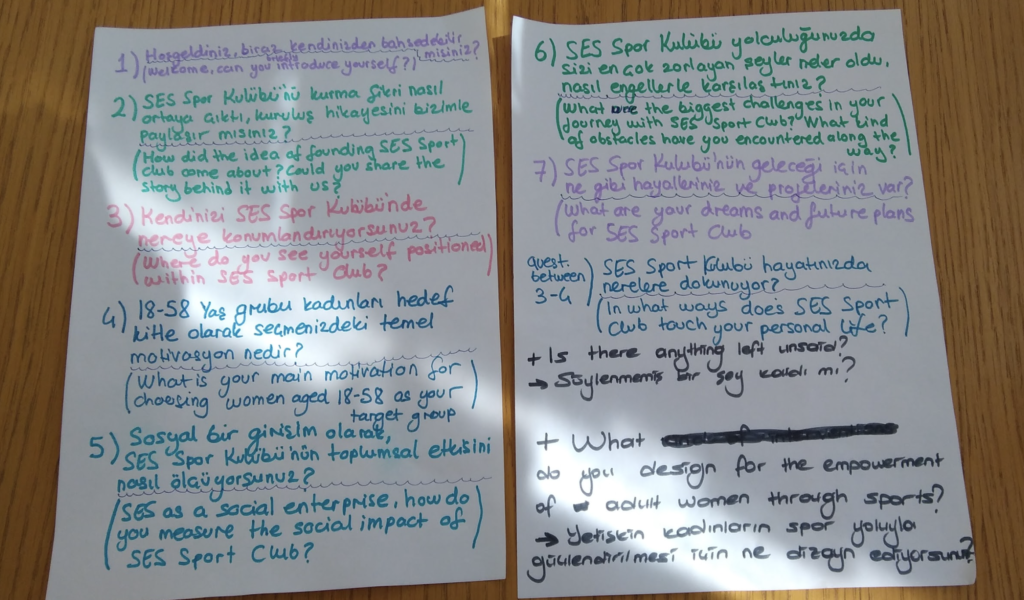 1) Hoşgeldiniz, biraz kendinizden bahsedebilir
misiniz?
(Welcome, can you briefly introduce yourself?)
2) SES Spor Kulübü'nü kurma fikri nasıl
ortaya çıktı, kuruluş hikayesini bizimle
paylaşır mısınız?
(How did the idea of founding SES Sport
club come about? Could you share the
story behind it with us?)
3) Kendinizi SES Spor Kulübünde
nereye konumlandırıyorsunuz?
(Where do you see yourself positioned
within SES Sport Club?)
4) 18-58 Yaş grubu kadınları hedef
kitle olarak seçmenizdeki temel
motivasyon nedir?
(What is your main motivation for
choosing women aged 18-58 as your
target group)
5) Sosyal bir girişim olarak,
SES Spor Kulübü'nün toplumsal etkisini
nasıl ölçüyorsunuz?
(SES as a social enterprise, how do
you measure the social impact of
SES Sport Club?)
6) SES Spor Kulübü yolculuğunuzda
sizi en çok zorlayan şeyler neler oldu,
nasıl engellerle karşılaştınız?
(What are the biggest challenges in your
journey with SES Sport Club? What kind
of obstacles have you encountered along the
way?)
7) SES Spor Kulübü'nün geleceği için
ne gibi hayalleriniz ve projeleriniz var?
(What are your dreams and future plans
for SES Sport Club
quest.
between
3-4
) SES Sport Kulübü hayatınızda
nerelere dokunuyor?
(In what ways does SES Sport
Club touch your personal life?)
+ Is there anything left unsaid?
→ Söylenmemiş bir şey kaldı mı?
+ What
do you design for the empowerment
of adult women through sports?
→ Yetişkin kadınların spor yoluyla
güçlendirilmesi için ne dizayn ediyorsunuz?